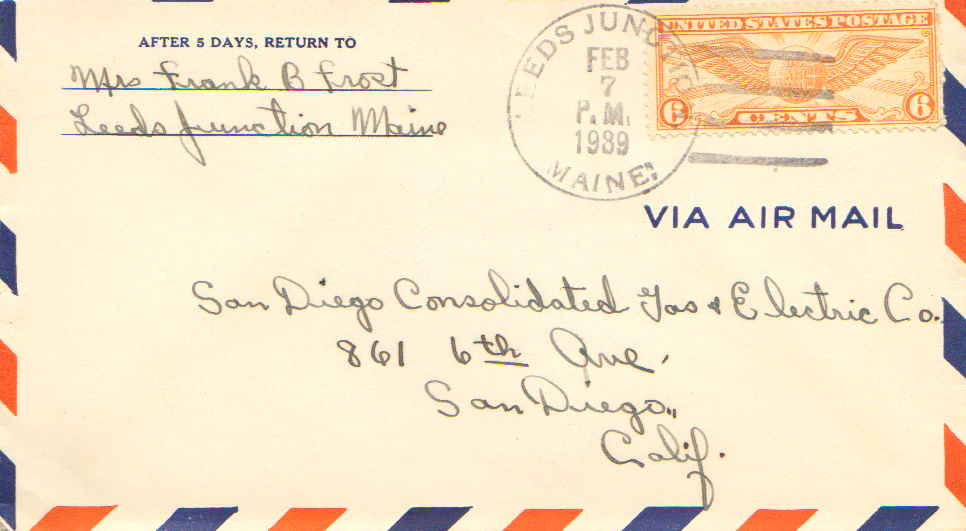 AFTER 5 DAYS, RETURN TO
Mrs Frank B Frost
Leeds Junction Maine
LEEDS JUNC
FEB
7
P.M.
1939
MAINE
UNITED STATES POSTAGE
6 CENTS 6
VIA AIR MAIL
San Diego Consolidated Gas & Electric Co.
861 6th Ave.
San Diego,
Calif.